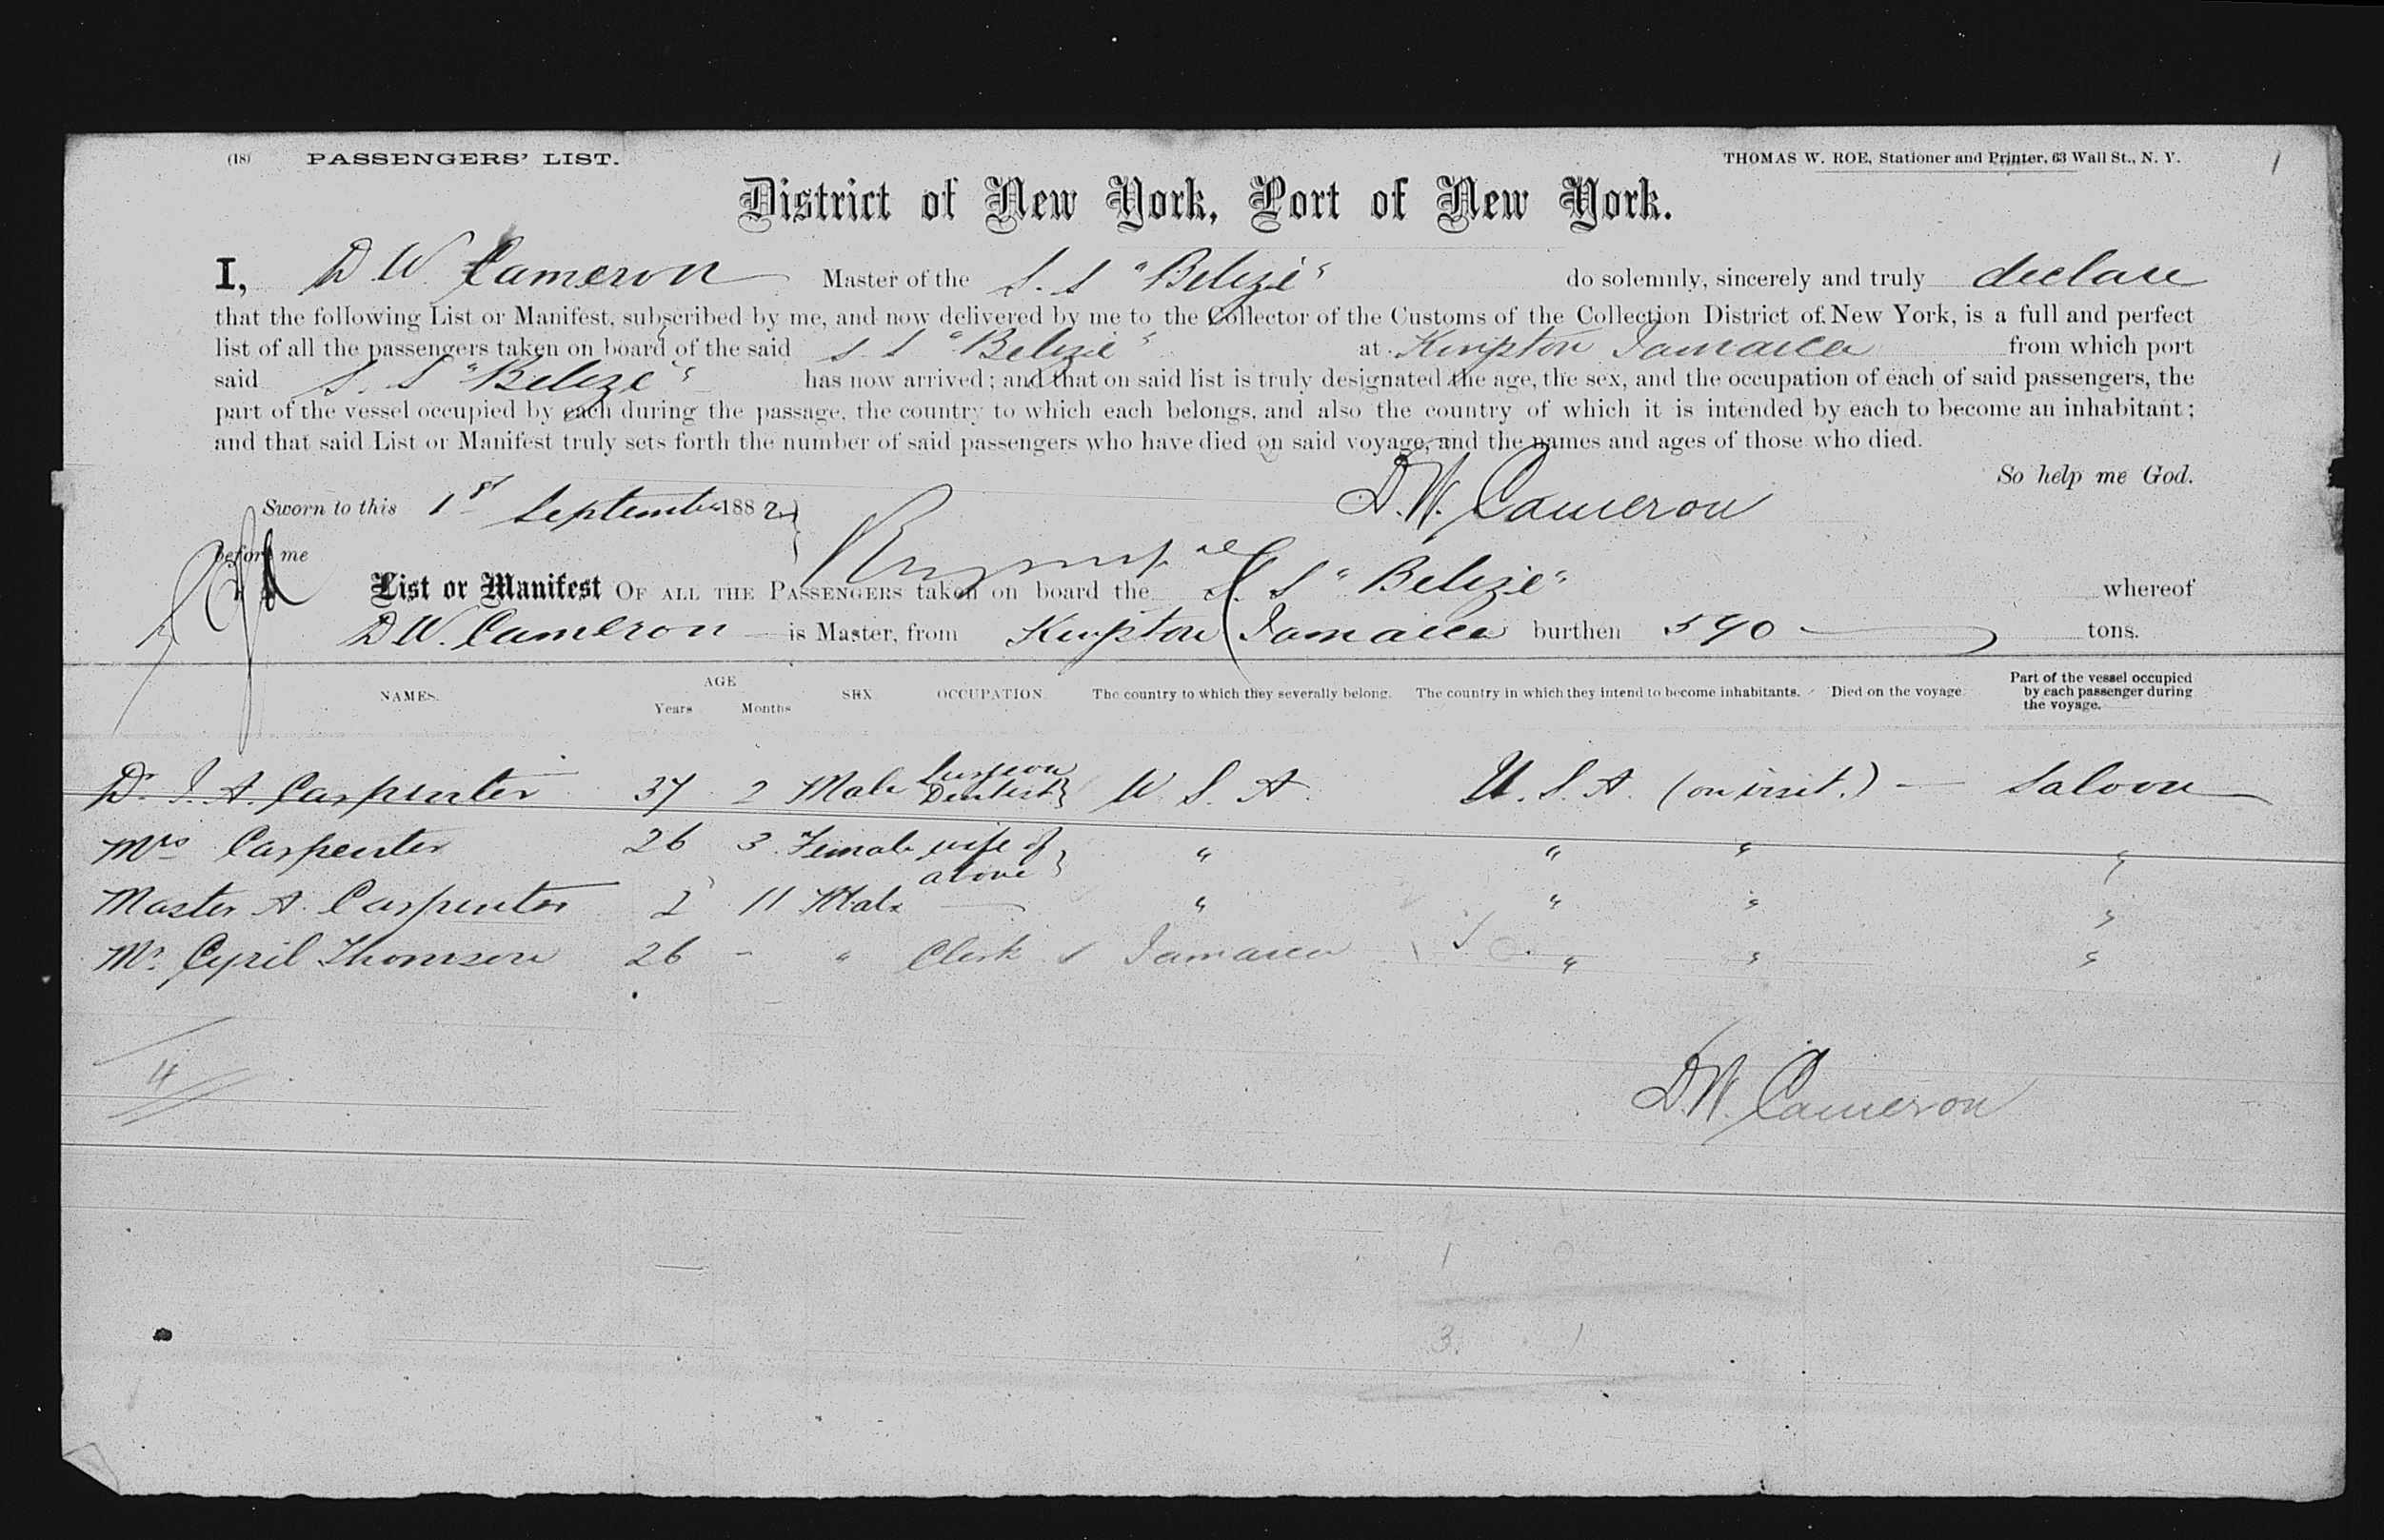 (18) PASSENGERS' LIST. THOMAS W. ROE, Stationer and Printer, 63 Wall St., N. Y. 1
District of New York, Port of New York.
I, D W. Cameron Master of the S. S "Belize" do solemnly, sincerely and truly declare
that the following List or Manifest, subscribed by me, and now delivered by me to the Collector of the Customs of the Collection District of New York, is a full and perfect
list of all the passengers taken on board of the said S. S "Belize" at Kingston Jamaica from which port
said S. S "Belize" has now arrived; and that on said list is truly designated the age, the sex, and the occupation of each of said passengers, the
part of the vessel occupied by each during the passage, the country to which each belongs, and also the country of which it is intended by each to become an inhabitant;
and that said List or Manifest truly sets forth the number of said passengers who have died on said voyage, and the names and ages of those who died.
So help me God.
Sworn to this 1st September 1882 D. W. Cameron
before me
List or Manifest OF ALL THE PASSENGERS taken on board the S. S "Belize" whereof
D W. Cameron is Master, from Kingston Jamaica burthen 590 tons.
NAMES. AGE Years Months SEX OCCUPATION. The country to which they severally belong. The country in which they intend to become inhabitants. Died on the voyage Part of the vessel occupied by each passenger during the voyage.
Dr. J. A. Carpenter 37 2 Male Surgeon Dentist U. S. A. U. S. A. (on visit.) Saloon
Mrs Carpenter 26 3 Female wife of above " " " "
Master A. Carpenter 2 11 Male — " " " "
Mr. Cyril Thomson 26 - " Clerk Jamaica " " "
4
D. W. Cameron
1
3. 1